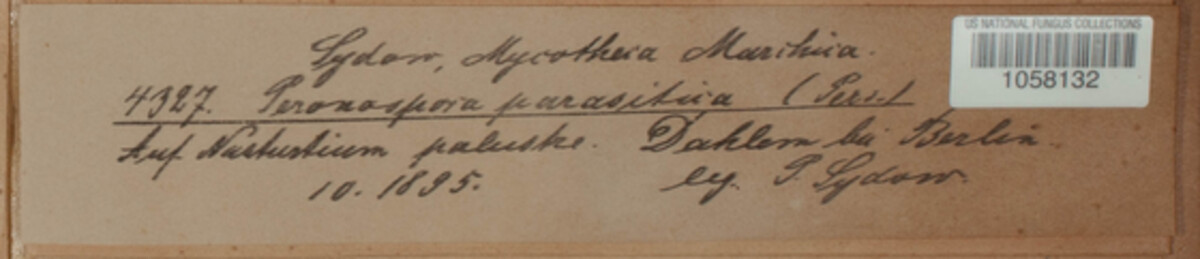 Sydow, Mycotheca Marchica.
US NATIONAL FUNGUS COLLECTIONS
1058132
4327. Peronospora parasitica (Pers.)
Auf Nasturtium palustre. Dahlem bei Berlin.
10. 1895. leg. P. Sydow.